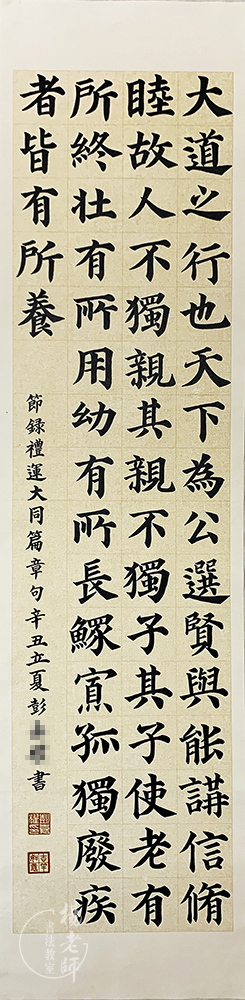 大道之行也天下為公選賢與能講信脩
睦故人不獨親其親不獨子其子使老有
所終壯有所用幼有所長鰥寡孤獨廢疾
者皆有所養
節録禮運大同篇章句辛丑立夏彭書
老師
書法教室